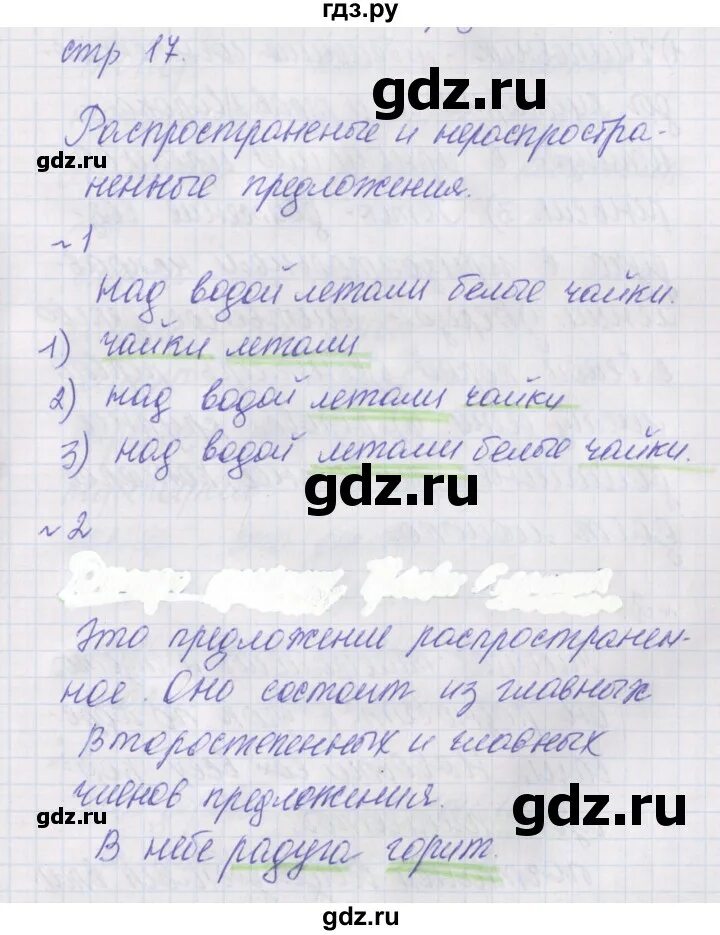 гдз.ру
стр 17.
gdz.ru
Распространеные и нераспростра-
gdz.ru
ненные предложения.
~1
Над водой летали белые чайки.
1) чайки летали
2) над водой летали чайки
3) над водой летали белые чайки.
gdz.ru
~2
Это предложение распространен-
ное. Оно состоит из главных
второстепенных и главных
членов предложения.
gdz.ru
gdz.ru
В небе радуга горит.
gdz.ru